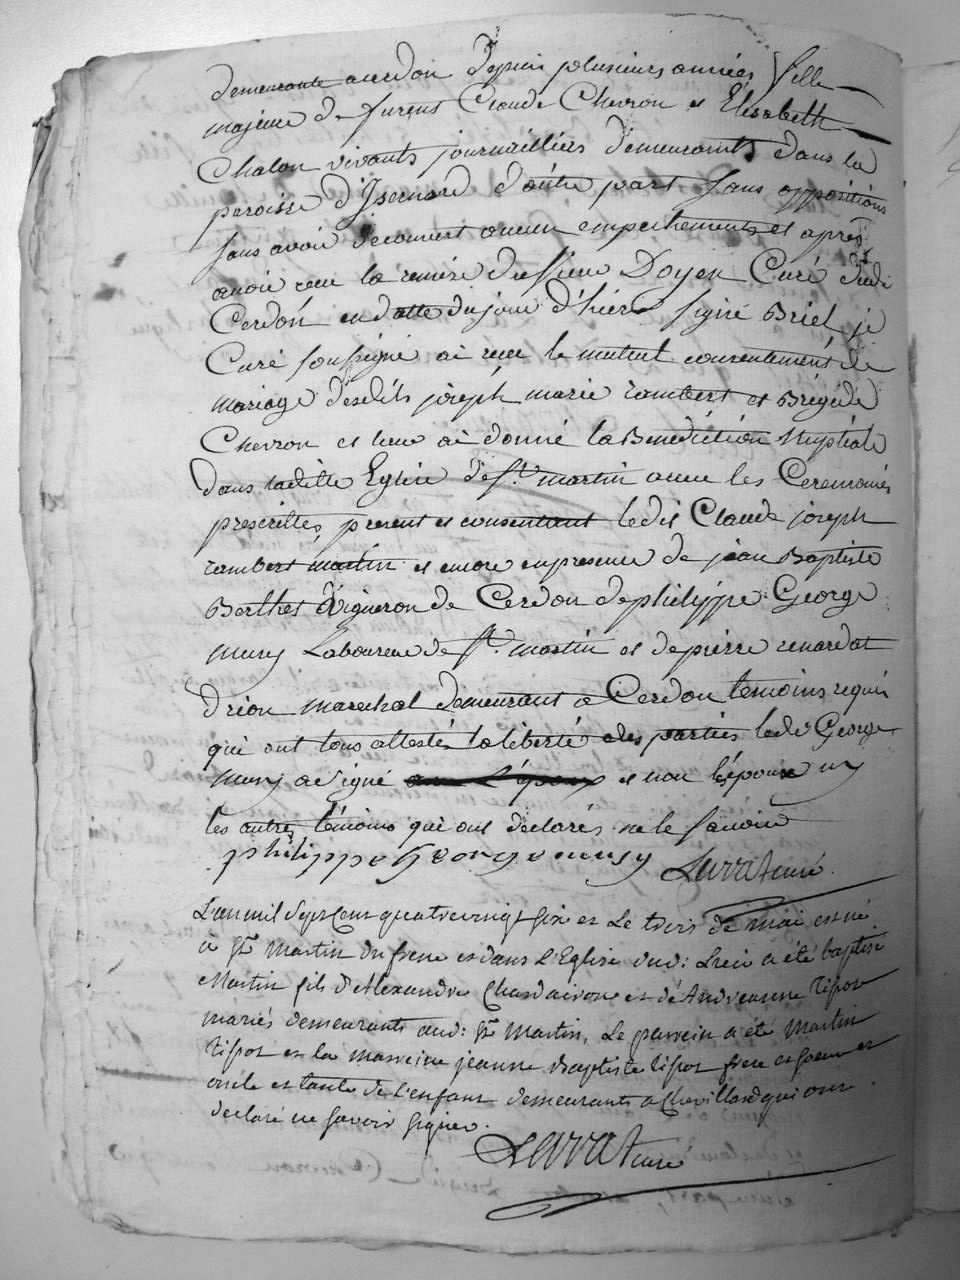 demeurante a cerdon depuis plusieurs années fille
majeure de furent Claude Chevron et Elisabeth
Chalon vivants journailliers demeurants dans la
paroisse d'Isernore d'autre part sans oppositions
sans avoir decouvert aucun empechements et après
avoir receu la remise du sieur Doyen Curé dud:
Cerdon en datte du jour d'hiere signé Briel je
Curé soussigné ai receu le mutuel consentement de
mariage desdits joseph marie rambert et Brégide
Chevron et leur ai donné la Benediction Nuptiale
dans laditte Eglise de St. martin avec les Ceremonies
prescrittes present et consentant ledit Claude joseph
rambert martin et encore en presence de jean Baptiste
Berthet vigneron de Cerdon de philippe George
mury Laboureur de St. martin et de pierre renardat
drion marechal demeurant a Cerdon temoins requis
qui ont tous attestés la liberté des parties ledit George
mury a signé et non l'épouse ny
les autres témoins qui ont declarés ne le savoir
philippe George mury Larrat curé
L'an mil sept cent quatre vingt six et Le trois de mai est né
à St Martin du frene et dans L'Eglise dud: Lieu a été baptisé
Martin fils d'Alexandre et d'Andreanne Tissot
mariés demeurants aud: St Martin, Le parrein a été Martin
Tissot et la marreine jeanne Baptiste Tissot frere et soeur et
oncle et tante de L'enfant demeurants a Chevillard qui ont
declaré ne savoir signer.
Larrat curé